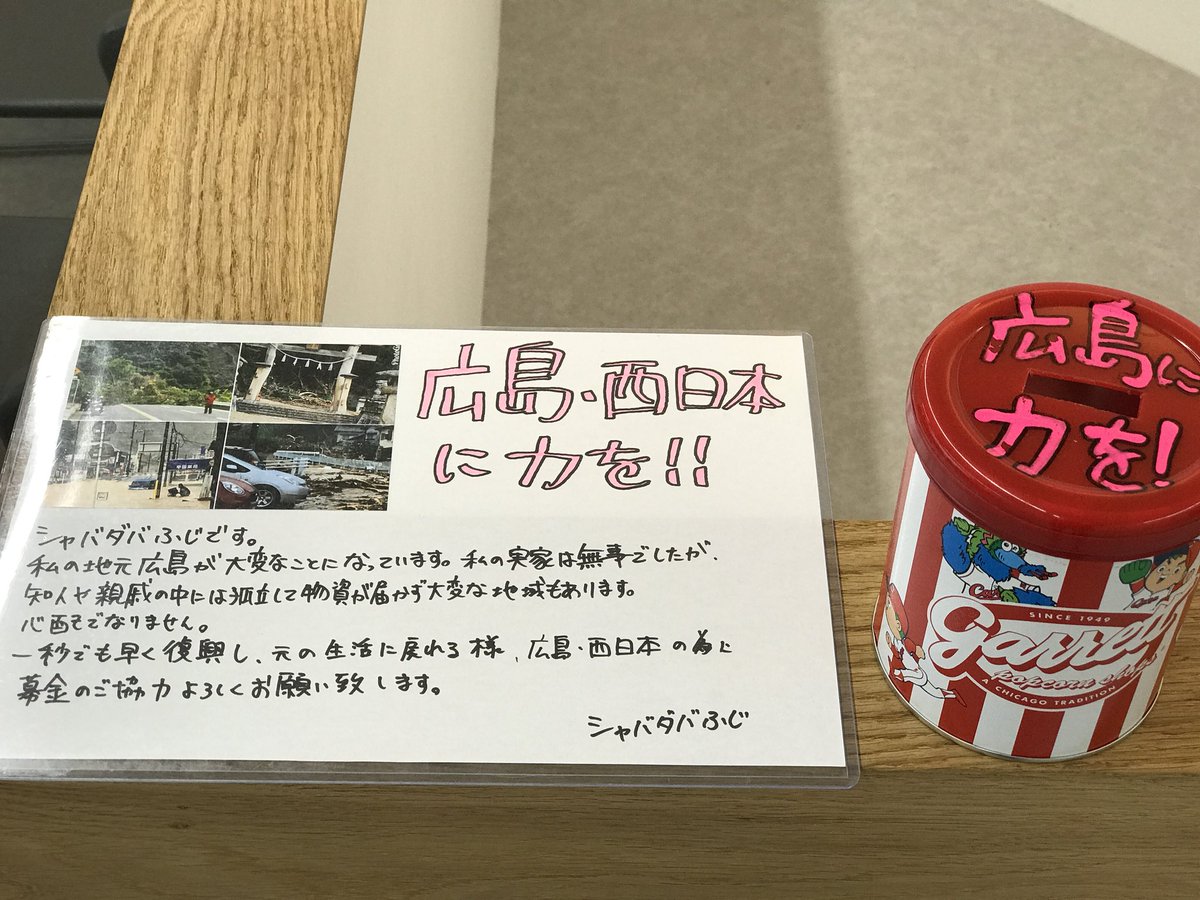 広島・西日本
に力を!!
シャバダバふじです。
私の地元広島が大変なことになっています。私の実家は無事でしたが、
知人や親戚の中には孤立して物資が届かず大変な地域もあります。
心配でなりません。
一秒でも早く復興し、元の生活に戻れる様、広島・西日本の為に
募金のご協力よろしくお願い致します。
シャバダバふじ
広島に
力を!
SINCE 1949
Garrett
popcorn shops
A CHICAGO TRADITION